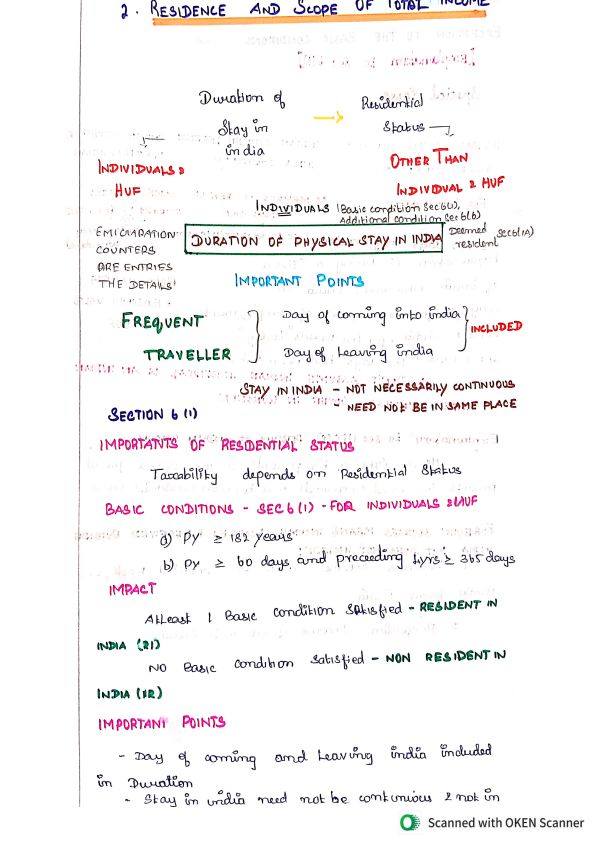 2. RESIDENCE AND SCOPE OF TOTAL INCOME
Duration of Stay in india → Residential Status
INDIVIDUALS & HUF
OTHER THAN INDIVIDUAL & HUF
INDIVIDUALS (Basic condition Sec 6(1), Additional condition Sec 6(6)
EMIGRATION
COUNTERS
ARE ENTRIES
THE DETAILS'
DURATION OF PHYSICAL STAY IN INDIA
Deemed resident Sec 6(1A)
IMPORTANT POINTS
FREQUENT TRAVELLER
Day of coming into india
Day of Leaving india
INCLUDED
STAY IN INDIA - NOT NECESSARILY CONTINUOUS
- NEED NOT BE IN SAME PLACE
SECTION 6 (1)
IMPORTANTS OF RESIDENTIAL STATUS
Taxability depends on Residential Status
BASIC CONDITIONS - SEC 6 (1) - FOR INDIVIDUALS & HUF
a) PY ≥ 182 years
b) PY ≥ 60 days and preceeding 4yrs ≥ 365 days
IMPACT
Atleast 1 Basic condition Satisfied - RESIDENT IN
INDIA (RI)
NO Basic condition Satisfied - NON RESIDENT IN
INDIA
IMPORTANT POINTS
- Day of coming and Leaving india included
in Duration
- Stay in india need not be continuous & not in
Scanned with OKEN Scanner